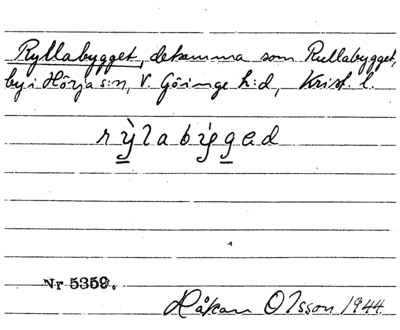 Ryllabygget, detsamma som Rullabygget,
by i Hörja s:n, V. Göinge h:d, Krist. l.
rỳlabýged
Nr 5359.
Håkan Olsson 1944